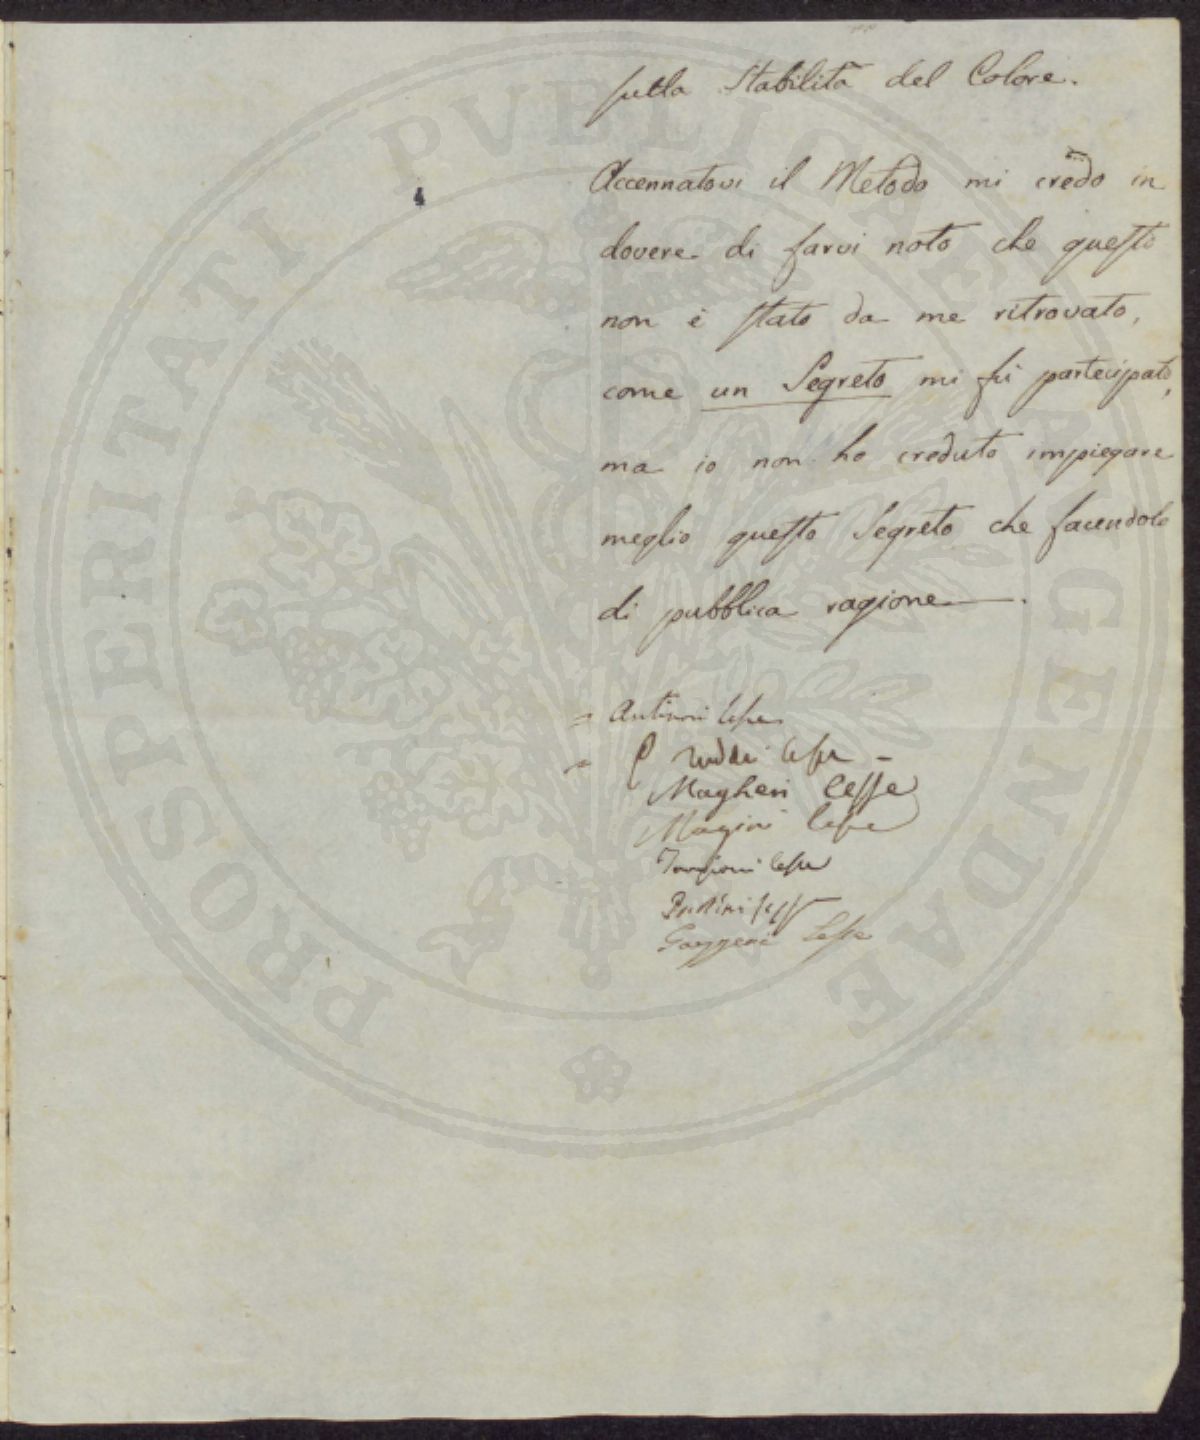 sulla Stabilità del Colore.
Accennatovi il Metodo mi credo in
dovere di farvi noto che questo
non è stato da me ritrovato,
come un Segreto mi fù partecipato,
ma io non ho creduto impiegare
meglio questo Segreto che facendolo
di pubblica ragione.
= Antinori lesse
= Taddei lesse
Magheri lesse
Magini lesse
Targioni lesse
lesse
Gazzeri lesse
PROSPERITATI PVBLICAE AVGENDAE